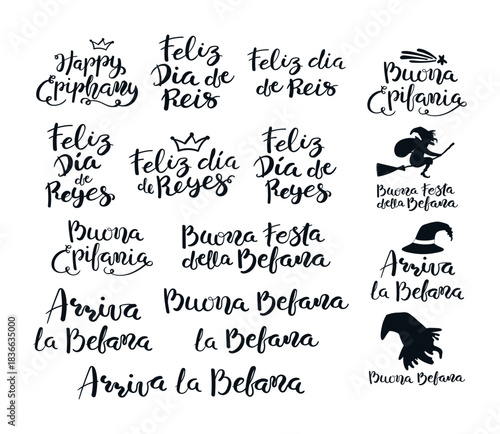 Happy
Epiphany
Feliz
Dia de
Reis
Feliz dia
de Reis
Buona
Epifania
Feliz
Día
de
Reyes
Feliz día
de Reyes
Feliz
Día de
Reyes
Buona Festa
della Befana
Buona
Epifania
Buona Festa
della Befana
Arriva
la Befana
Arriva
la Befana
Buona Befana
la Befana
Buona Befana
Arriva la Befana
Adobe Stock | #1836635000